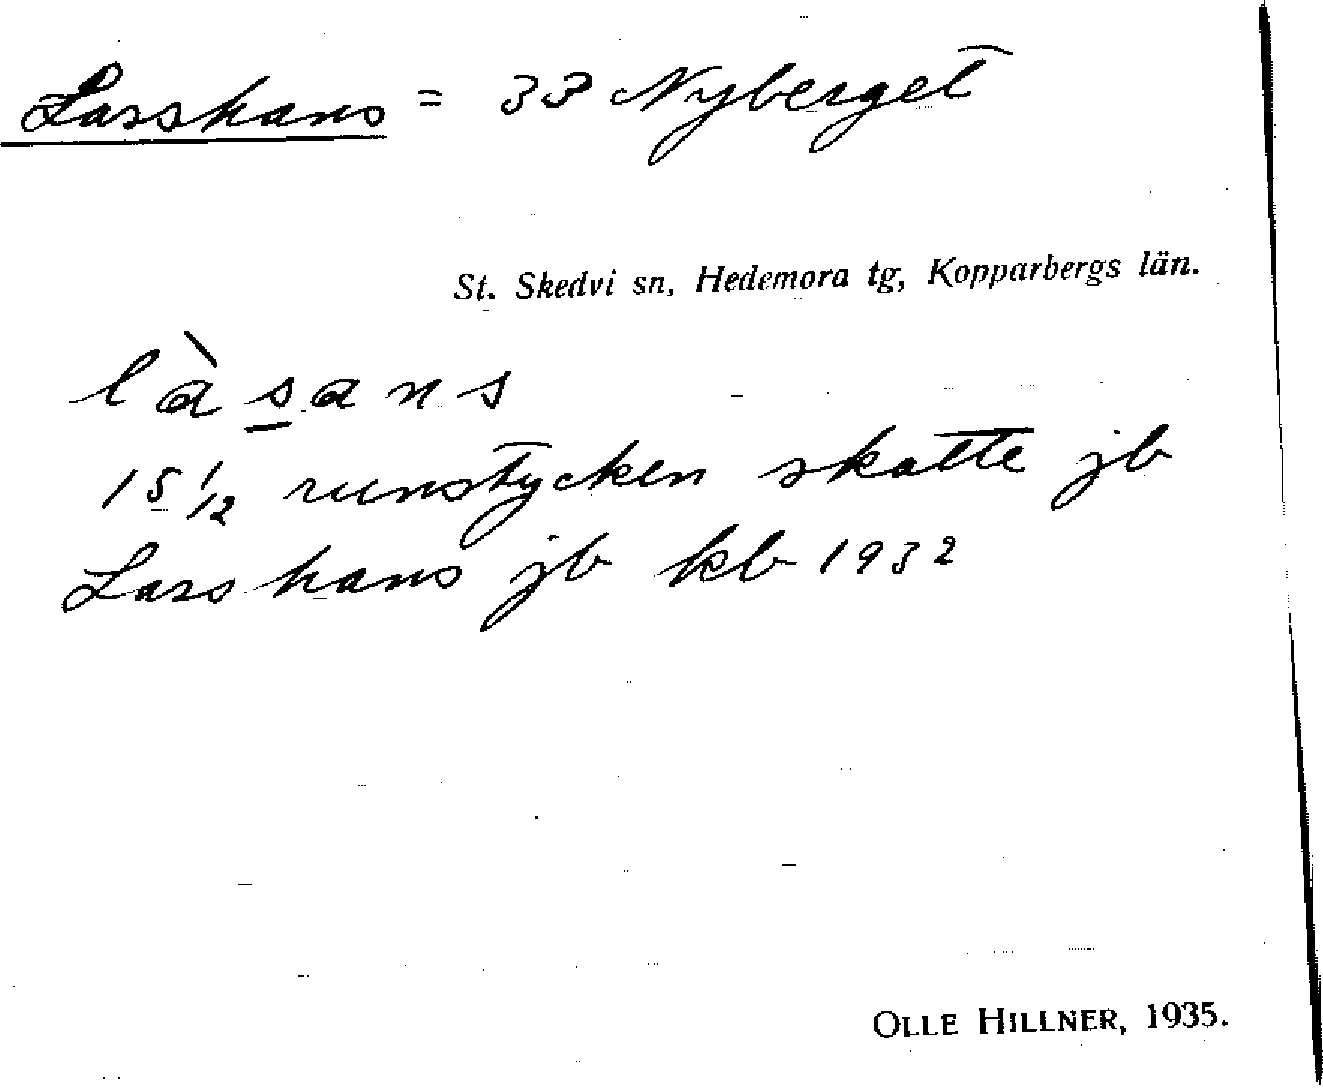 Larshans = 33 Nyberget
St. Skedvi sn, Hedemora tg, Kopparbergs län.
làsans
15 1/12 runstycken skatte jb
Lars hans jb kb 1932
OLLE HILLNER, 1935.